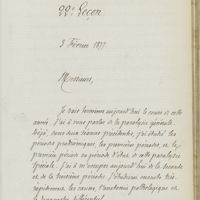 22e Leçon
3 Février 1877
Messieurs,
Je vais terminer aujourd'hui le cours de cette
année. J'ai à vous parler de la paralysie générale.
Déjà, dans deux séances précédentes, j'ai étudié les
périodes prodromiques, les premières périodes, et la
première période ou période d'état de cette paralysie
spéciale. J'ai à vous entretenir aujourd'hui de la seconde
et de la troisième période. J'étudierai ensuite très
rapidement les causes, l'anatomie pathologique et
le diagnostic différentiel